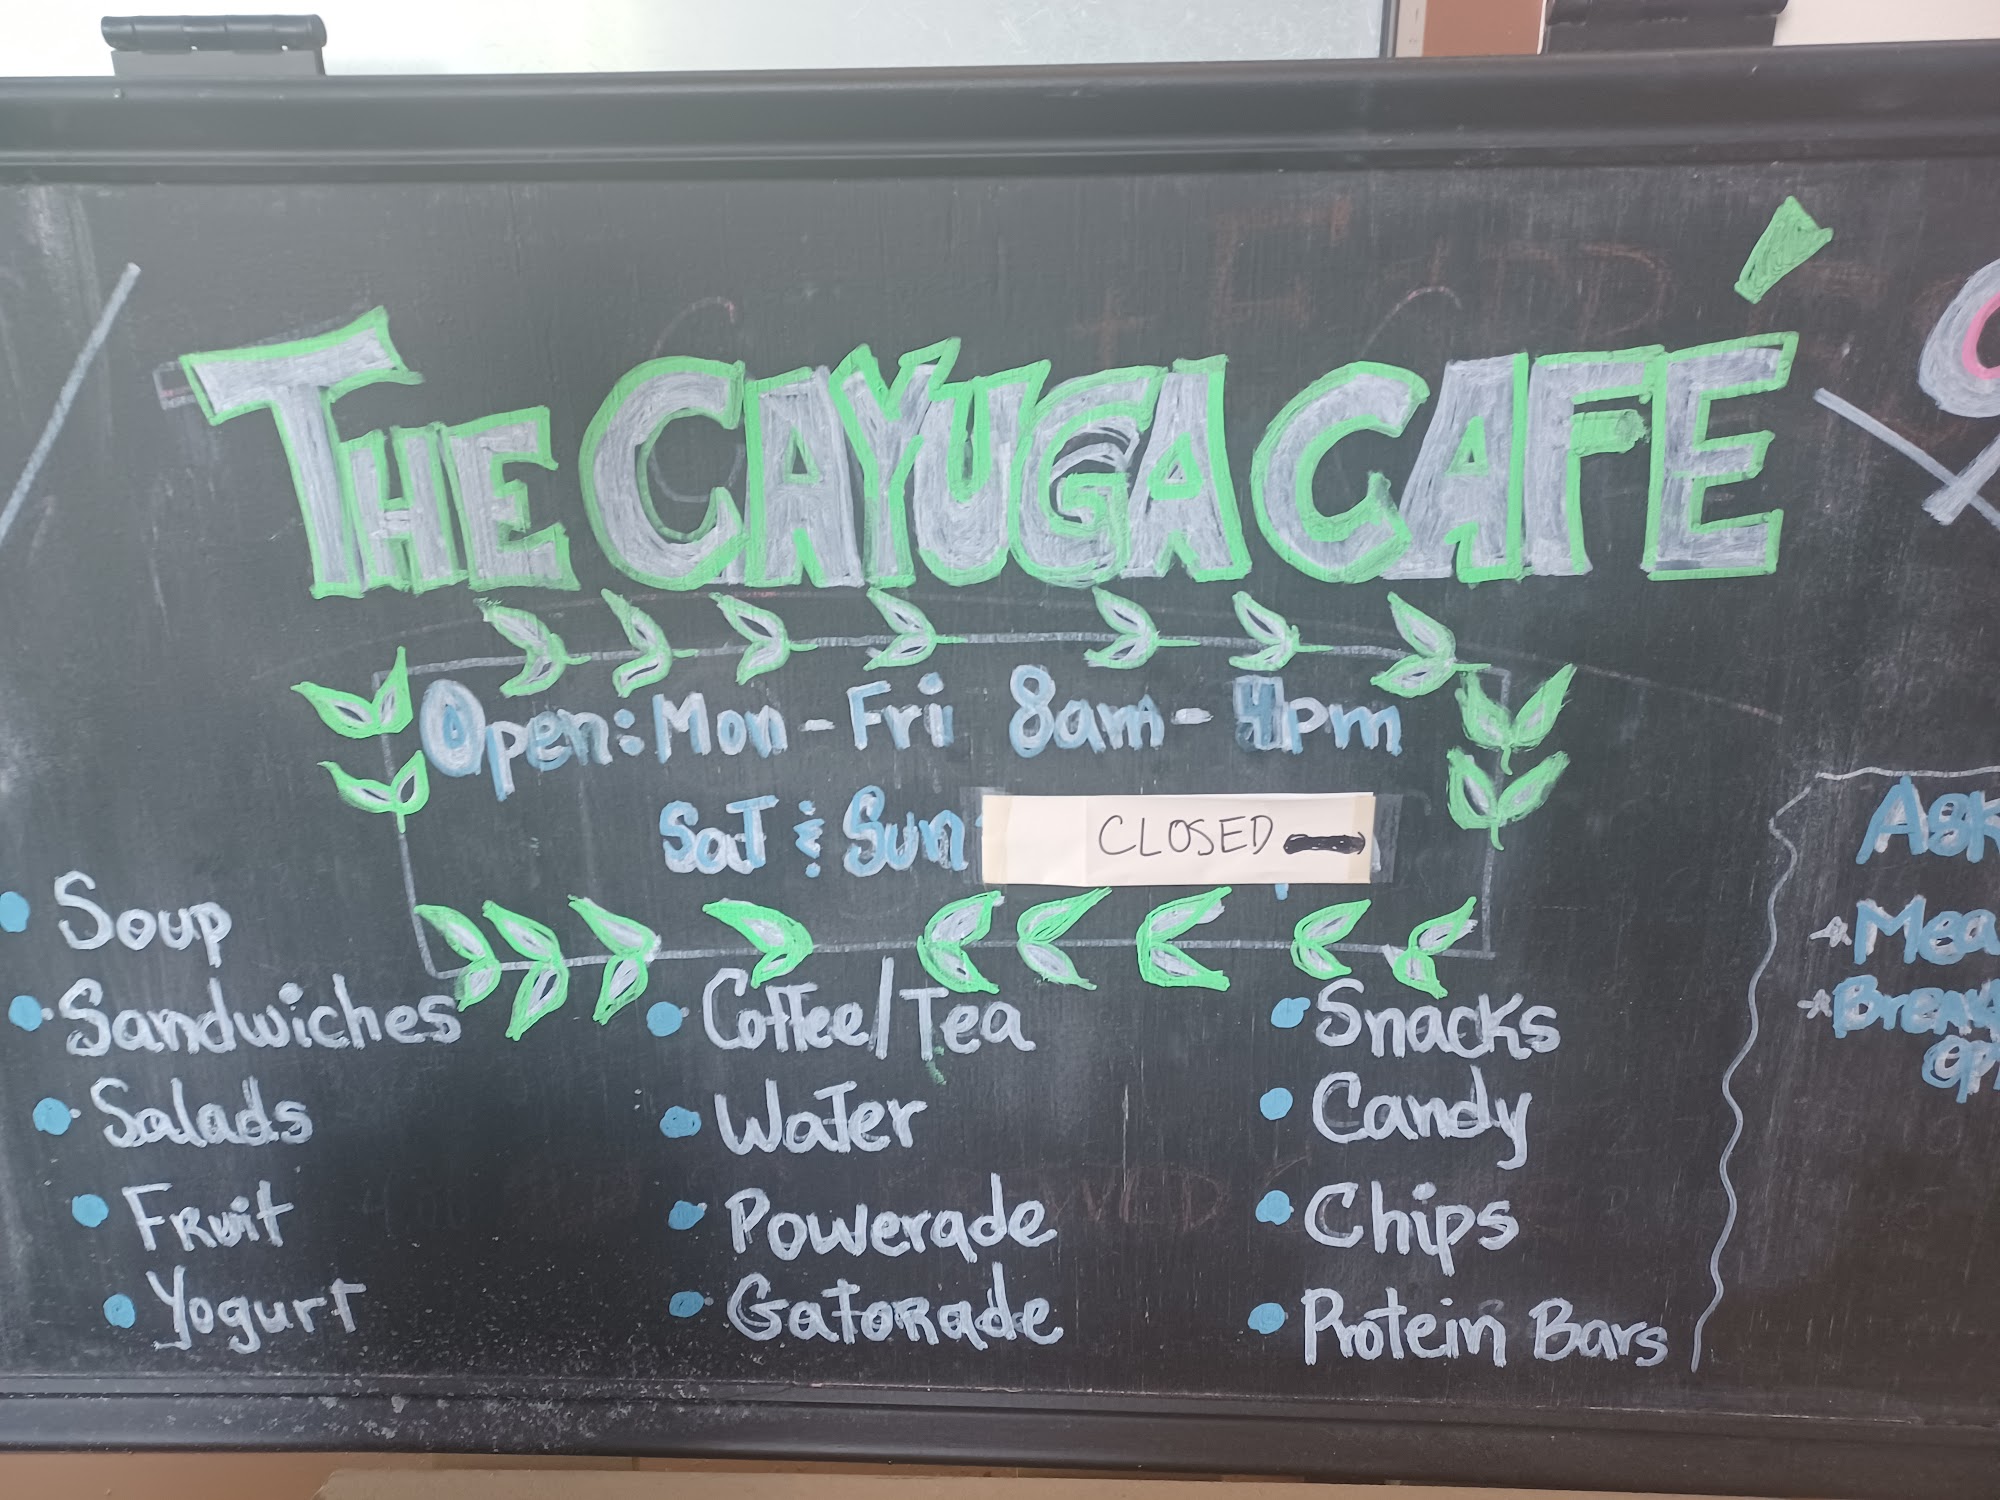 THE CAYUGA CAFÉ
Open: Mon - Fri 8am - 4pm
Sat & Sun: CLOSED
Soup
Sandwiches
Salads
Fruit
Yogurt
Coffee/Tea
Water
Powerade
Gatorade
Snacks
Candy
Chips
Protein Bars
Ask